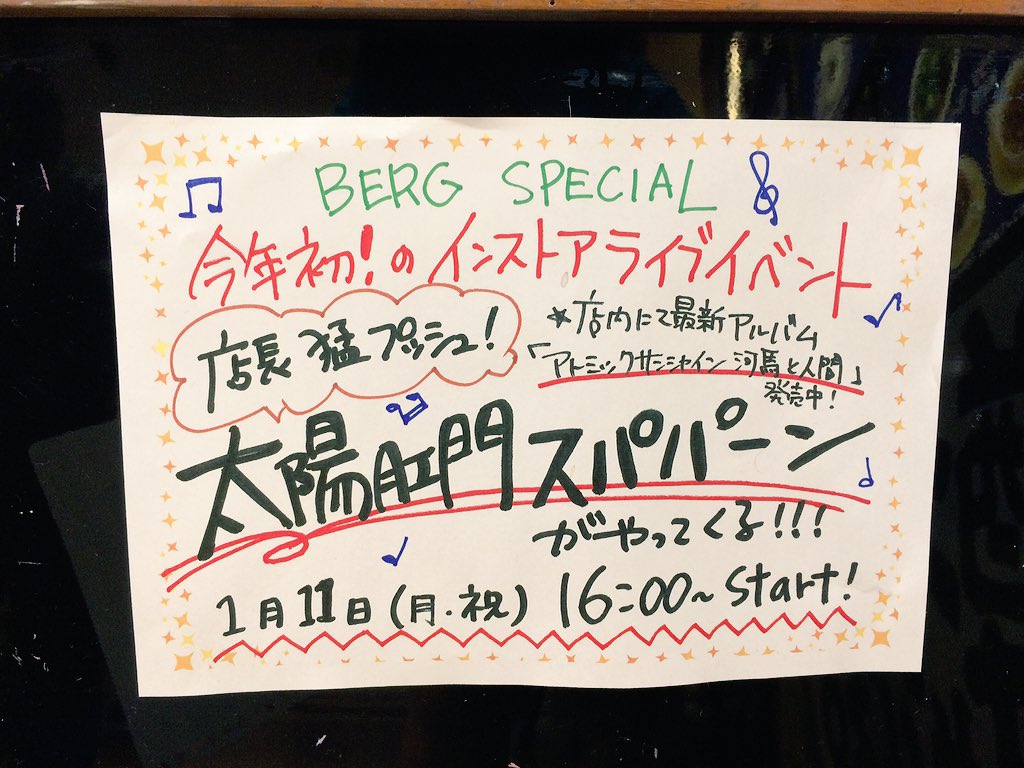 BERG SPECIAL
今年初!のインストアライブイベント
店長猛プッシュ!
★店内にて最新アルバム
「アトミックサンシャイン 河馬と人間」
発売中!
太陽肛門スパパーン
がやってくる!!!
1月11日(月・祝) 16:00~start!